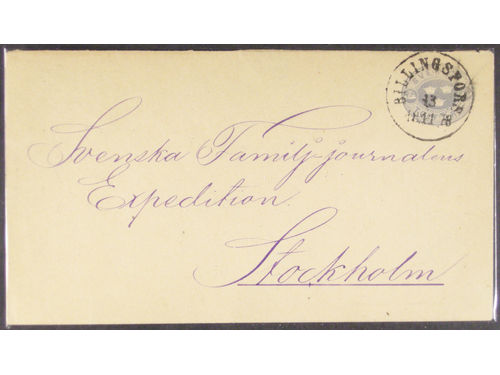 BILLINGSFORS
13
Svenska Familj-journalens
Expedition.
Stockholm